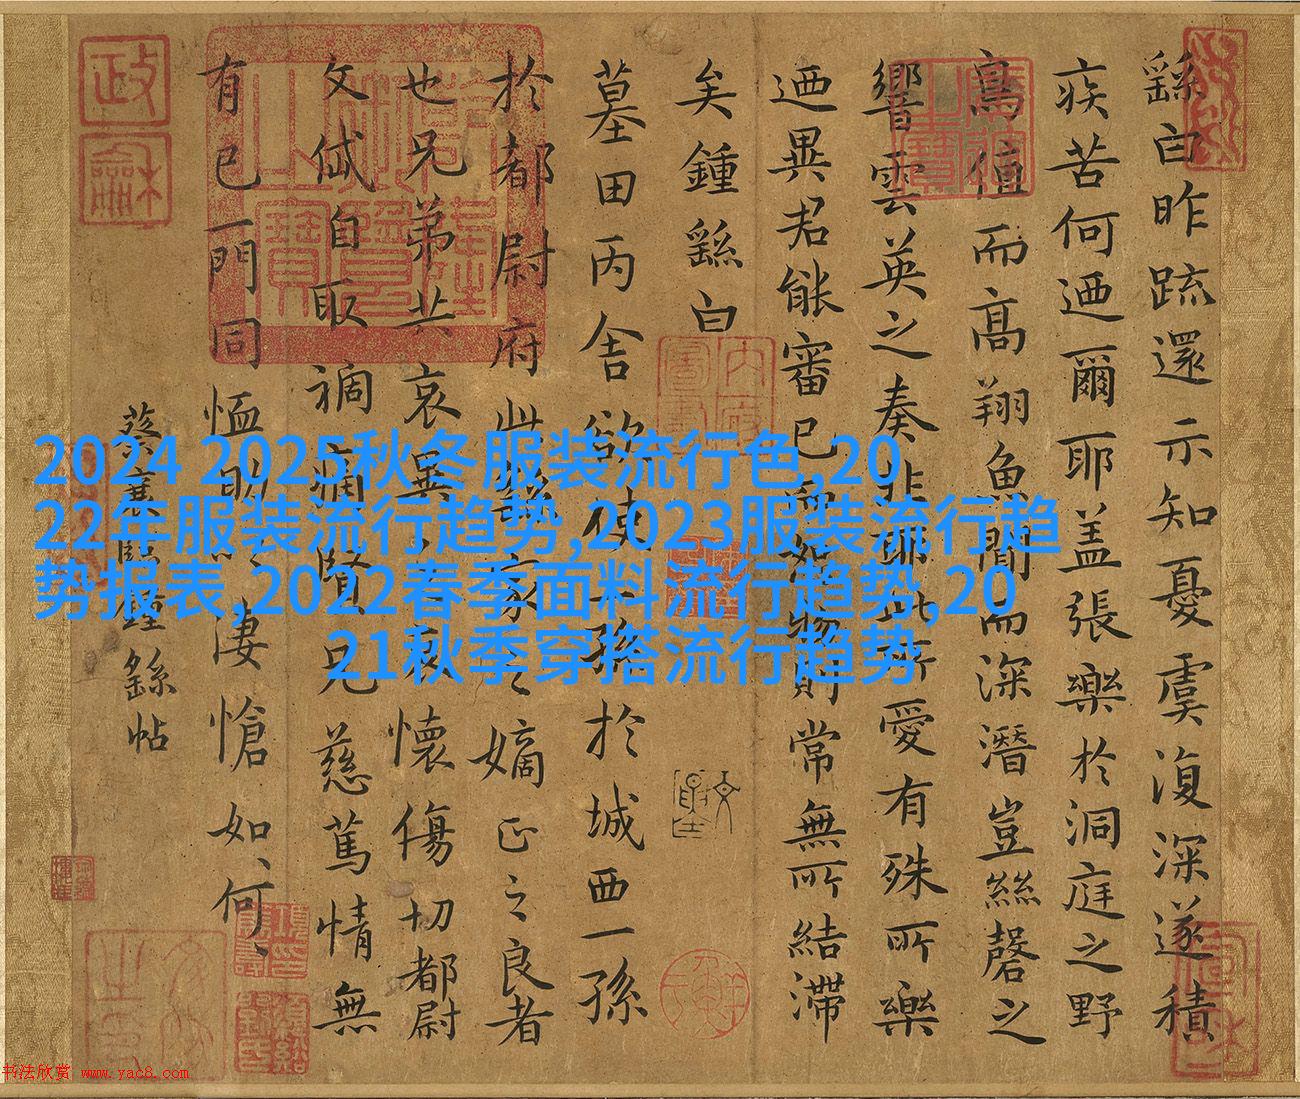 繇白昨疏還示知憂虞復深遂積
疾苦何迺爾耶蓋張樂於洞庭之野
鳥值而高翔魚聞而深潛豈絲磬之
響雲英之奏非耶此所愛有殊所樂
迺異君能審己而恕物則常無所結滯
矣鍾繇白
墓田丙舍欲使一孫於城西一孫
於都尉府此繇家之嫡正之良者
也兄弟共哀異之哀懷傷切都尉
文岱自取禍痛賢兄慈篤情無
有已一門同恤助以悽愴如何
蔡襄臨鍾繇帖
2024 2025秋冬服装流行色,20
22年服装流行趋势,2023服装流行趋
势报表,2022春季面料流行趋势,20
21秋季穿搭流行趋势
书法欣赏 www.yac8.com